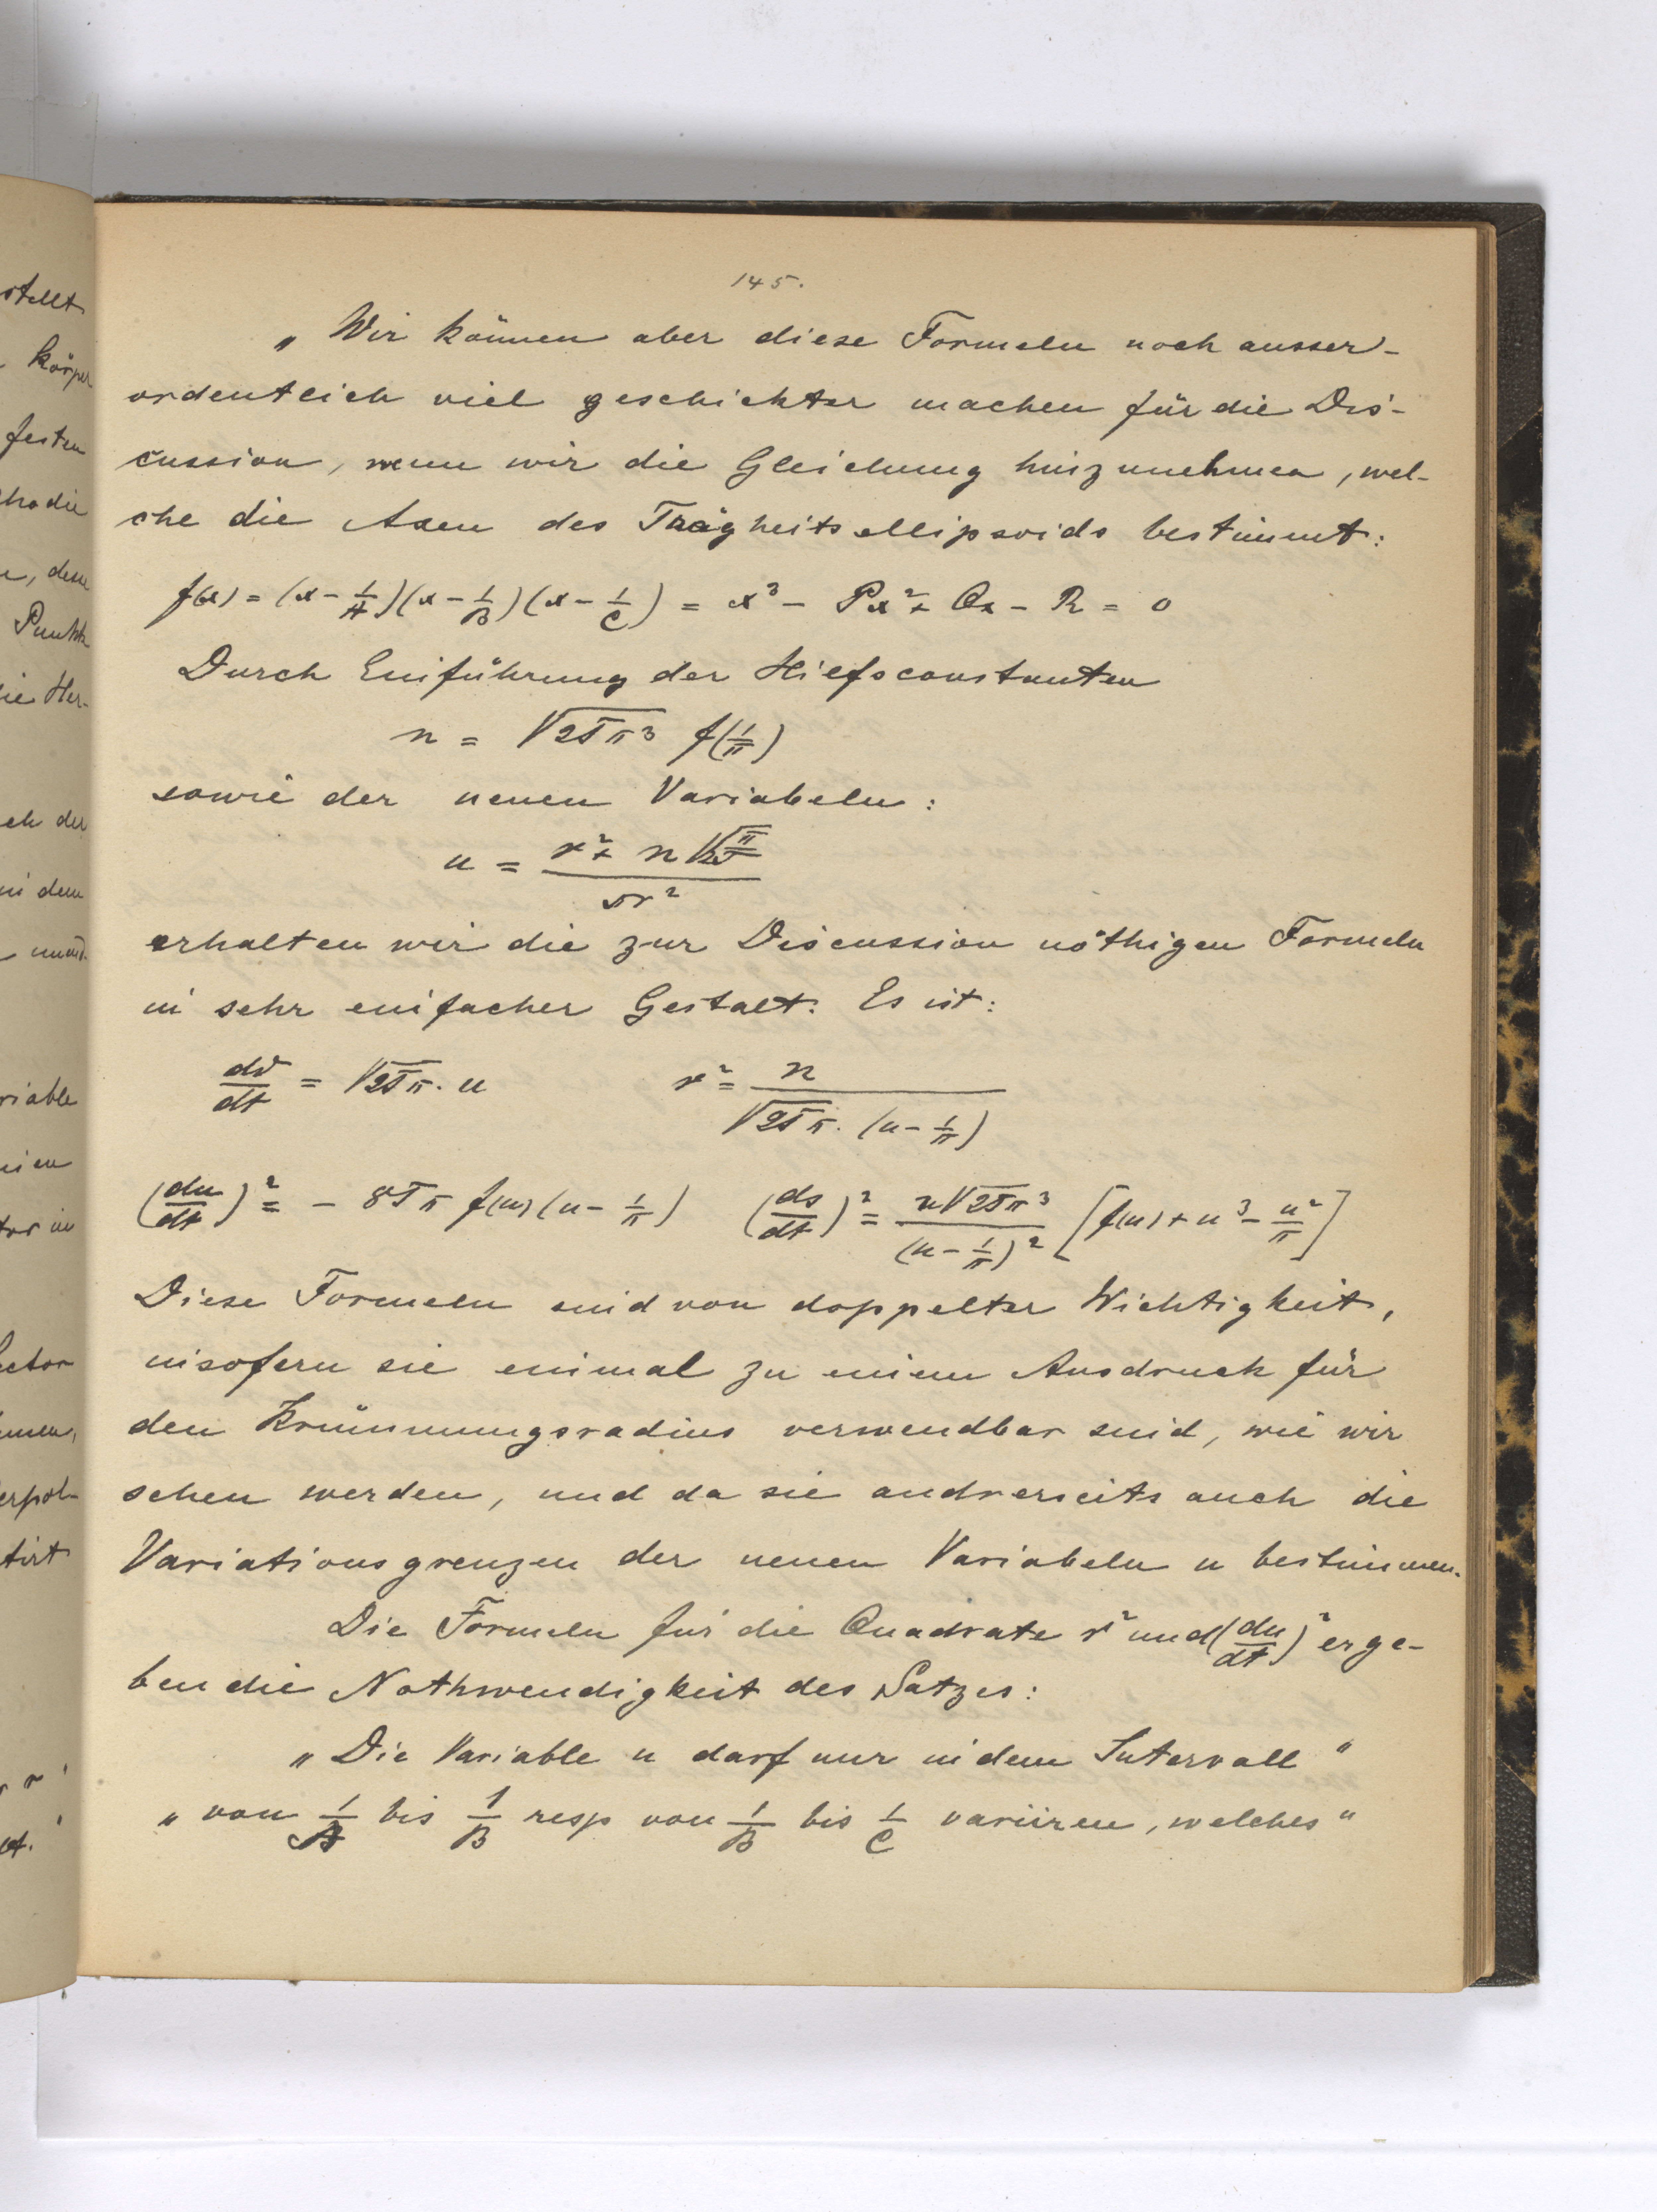 145.
„Wir können aber diese Formeln noch ausser-
ordentlich viel geschickter machen für die Dis-
cussion, wenn wir die Gleichung hinzunehmen, wel-
che die Axen des Trägheitsellipsoids bestimmt:
f(x) = (x - 1/A)(x - 1/B)(x - 1/C) = x³ - Px² + Qx - R = 0
Durch Einführung der Hilfsconstanten
n = √2Tπ³ f(1/π)
sowie der neuen Variabeln:
u = (r² + n√(π/2T)) / πr²
erhalten wir die zur Discussion nöthigen Formeln
in sehr einfacher Gestalt. Es ist:
dϑ/dt = √2Tπ. u r² = n / √2Tπ. (u - 1/π)
(du/dt)² = - 8Tπ f(u)(u - 1/π) (ds/dt)² = n√2Tπ³ / (u - 1/π)² [f(u) + u³ - u²/π]
Diese Formeln sind von doppelter Wichtigkeit,
insofern sie einmal zu einem Ausdruck für
den Krümmungsradius verwendbar sind, wie wir
sehen werden, und da sie andrerseits auch die
Variationsgrenzen der neuen Variabeln u bestimmen.
Die Formeln für die Quadrate r² und (du/dt)² erge-
ben die Nothwendigkeit des Satzes:
„Die Variable u darf nur in dem Intervall"
„von 1/A bis 1/B resp von 1/B bis 1/C variiren, welches"
stellt
körper
festen
Punkte
die Her-
ch der
in dem
riable
tor in
ector
erpol-
tirt